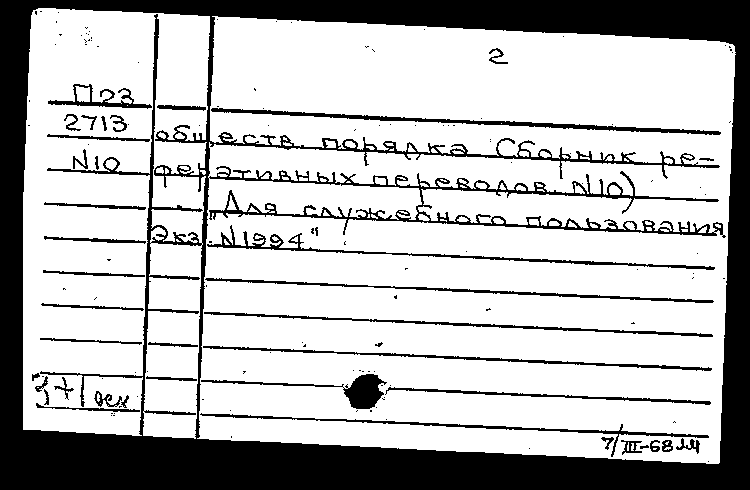 2
П23
2713 обществ. порядка Сборник ре-
N10 феративных переводов. N10)
„Для служебного пользования
Экз. N1994"
3+1 осн
7/III-68